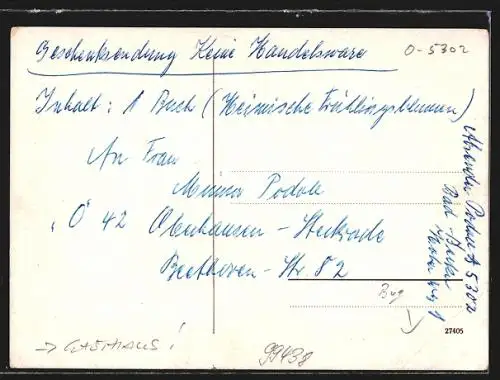 Geschenksendung Keine Handelsware
O-5302
Inhalt: 1 Buch (Heimische Frühlingsblumen)
An Frau
Minna Podole
"O" 42 Oberhausen - Sterkrade
Beethoven-Str 82
Absender
5302
Bad Berka
1
Bug
27405
→ GASTHAUS!
99438